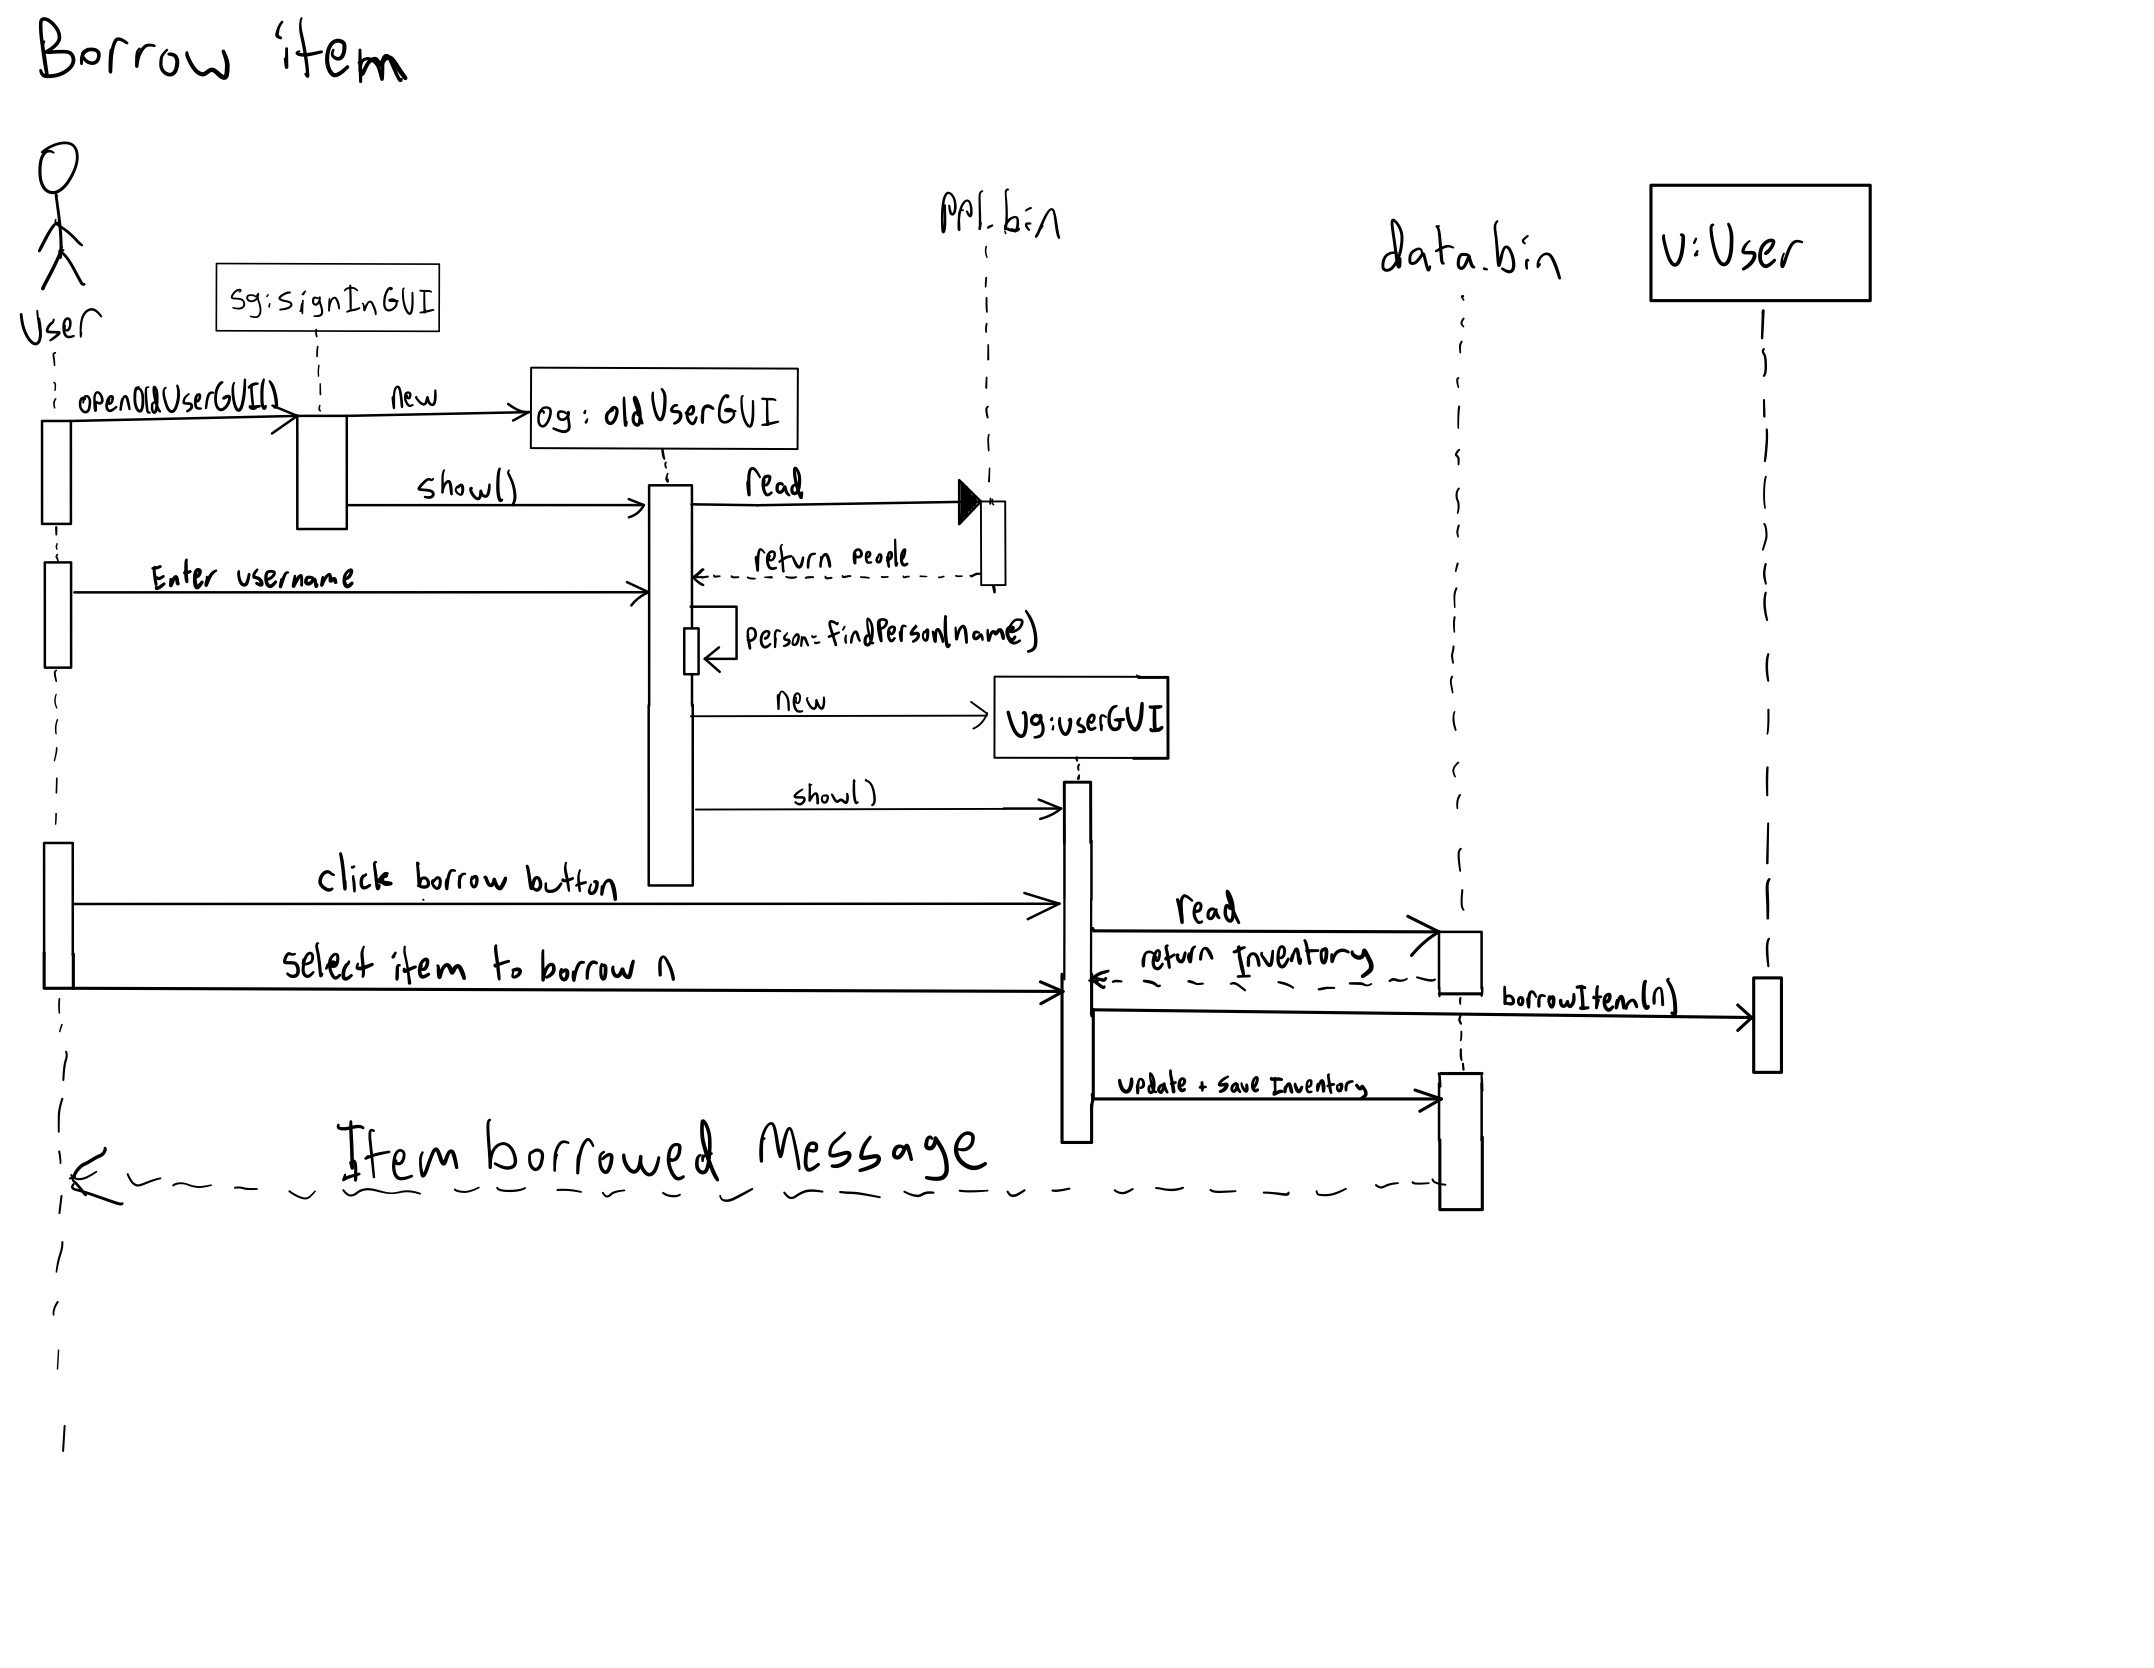 Borrow item
ppl.bin
data.bin
u:User
sg:signInGUI
User
openOldUserGUI()
new
og: oldUserGUI
show()
read
return people
Enter username
person=findPerson(name)
new
ug:userGUI
show()
click borrow button
read
return Inventory
select item to borrow n
borrowItem(n)
update + save Inventory
Item borrowed Message